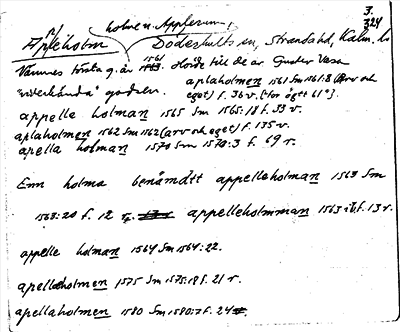 3.
324
holme n. Applerum,
Äpleholm Döderhults sn, Stranda hd, Kalm. l.
Nämnes första g. år 1561. Hörde till de av Gustav Vasa
"ärvda" godsen. aplaholmen 1561 Sm 1561:8 (Arv och
eget) f. 36 v. [för året 61].
appelle holman 1565 Sm 1565:18 f. 33 v.
aplaholmen 1562 Sm 1562 (arv och eget) f. 135 v.
apella holman 1570 Sm 1570:3 f. 69 r.
Enn holma benämdtt appelleholman 1563 Sm
1563:20 f. 12 r. appelleholmman 1563 f. 13 r.
appelle holman 1564 Sm 1564:22.
apelleholmen 1575 Sm 1575:18 f. 21 r.
apellaholmen 1580 Sm 1580:7 f. 24